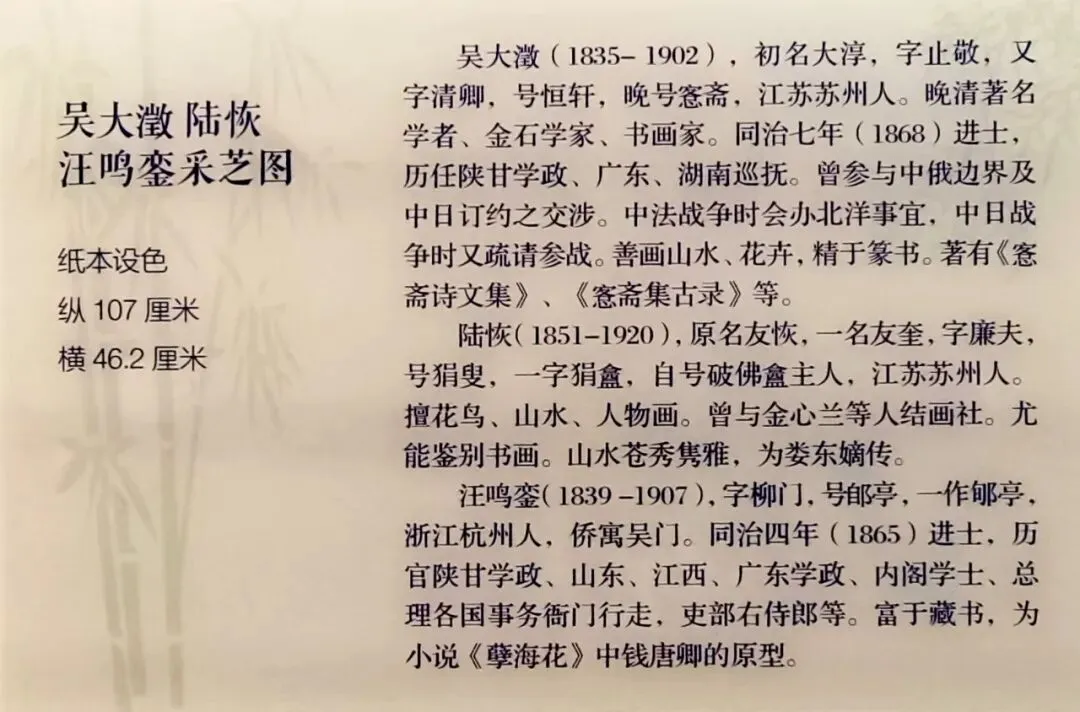 吴大澂 陆恢
汪鸣銮采芝图
纸本设色
纵 107 厘米
横 46.2 厘米
吴大澂（1835– 1902），初名大淳，字止敬，又
字清卿，号恒轩，晚号愙斋，江苏苏州人。晚清著名
学者、金石学家、书画家。同治七年（1868）进士，
历任陕甘学政、广东、湖南巡抚。曾参与中俄边界及
中日订约之交涉。中法战争时会办北洋事宜，中日战
争时又疏请参战。善画山水、花卉，精于篆书。著有《愙
斋诗文集》、《愙斋集古录》等。
陆恢（1851–1920），原名友恢，一名友奎，字廉夫，
号狷叟，一字狷盦，自号破佛盦主人，江苏苏州人。
擅花鸟、山水、人物画。曾与金心兰等人结画社。尤
能鉴别书画。山水苍秀隽雅，为娄东嫡传。
汪鸣銮（1839 –1907），字柳门，号郋亭，一作郇亭，
浙江杭州人，侨寓吴门。同治四年（1865）进士，历
官陕甘学政、山东、江西、广东学政、内阁学士、总
理各国事务衙门行走，吏部右侍郎等。富于藏书，为
小说《孽海花》中钱唐卿的原型。